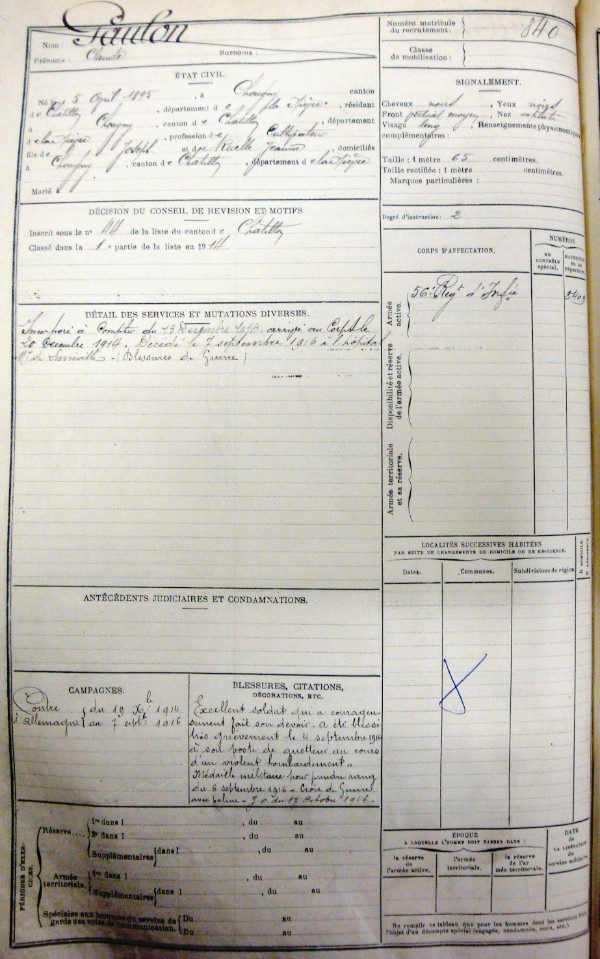 Paulon
Nom :
Prénoms : Claude Surnoms :
ÉTAT CIVIL.
Né le 5 April 1895, à Chougny canton
de Chatillon, département de la Nièvre, résidant
à Chougny, canton de Chatillon, département
de la Nièvre, profession de Cultivateur
fils de Joseph et de Ruelle Jeanne domiciliés
à Chougny, canton de Chatillon, département de la Nièvre
Marié à
DÉCISION DU CONSEIL DE REVISION ET MOTIFS.
Inscrit sous le n° 44 de la liste du canton de Chatillon
Classé dans la 1e partie de la liste en 1914
DÉTAIL DES SERVICES ET MUTATIONS DIVERSES.
Incorporé à Compter du 15 Décembre arrivé au Corps le
20 Décembre 1914. Décédé le 7 septembre 1916 à l'hôpital
(Blessures de Guerre)
ANTÉCÉDENTS JUDICIAIRES ET CONDAMNATIONS.
CAMPAGNES.
Contre du 19 Xbre 1914
l'Allemagne au 7 septbre 1916
BLESSURES, CITATIONS,
DÉCORATIONS, ETC.
Excellent soldat qui a courageu-
sement fait son devoir. a été blessé
très grièvement le 4 septembre 1916
à son poste de guetteur au cours
d'un violent bombardement".
Médaille militaire pour prendre rang
du 6 septembre 1916 - Croix de Guerre
avec palme - J.O. du 17 Octobre 1916.
PÉRIODES D'EXERCICES.
Réserve.... 1re dans l , du au
2e dans l , du au
Supplémentaires dans l , du au
Armée territoriale. 1re dans l , du au
Supplémentaires dans l , du au
Spéciales aux hommes du service de Du au
garde des voies de communication. Du au
Numéro matricule
du recrutement : 840
Classe
de mobilisation :
SIGNALEMENT.
Cheveux noirs, Yeux noirs
Front vertical moyen, Nez
Visage long, Renseignements physionomiques
complémentaires :
Taille : 1 mètre 65 centimètres.
Taille rectifiée : 1 mètre centimètres.
Marques particulières :
Degré d'instruction : 2
CORPS D'AFFECTATION.
NUMÉROS
AU CONTRÔLE spécial.
MATRICULE ou au répertoire
Armée active.
56e Regt d'Infie
Disponibilité et réserve de l'armée active.
Armée territoriale et sa réserve.
LOCALITÉS SUCCESSIVES HABITÉES
PAR SUITE DE CHANGEMENTS DE DOMICILE OU DE RÉSIDENCE.
Dates. Communes. Subdivisions de région
ÉPOQUE
A LAQUELLE L'HOMME DOIT PASSER DANS :
la réserve de l'armée active. l'armée territoriale. la réserve de l'armée territoriale.
DATE
DE LA LIBÉRATION
du service militaire.